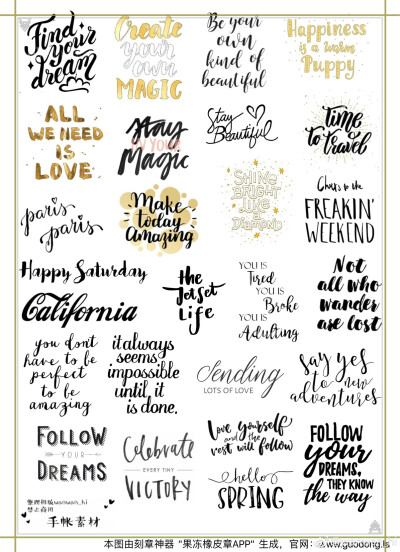 Find
your
dream
Create
your
own
MAGIC
Be your
own
kind of
beautiful
Happiness
is a warm
Puppy
ALL
WE NEED
IS
LOVE
Stay
IN YOUR
Magic
Stay
Beautiful
Time
to travel
paris
paris
Make
today
Amazing
SHINE
BRIGHT
LIKE
a
DIAMOND
Cheers to the
FREAKIN'
WEEKEND
Happy Saturday
California
the
Jet Set
Life
YOU IS
Tired
YOU IS
Broke
YOU IS
Adulting
Not
all who
wander
are lost
you don't
have to be
perfect
to be
amazing
it always
seems
impossible
until it
is done.
Sending
LOTS OF LOVE
say yes
to new
adventures
FOLLOW
YOUR
DREAMS
Celebrate
EVERY TINY
VICTORY
Love yourself
and the
rest will follow
hello
SPRING
FOLLOW
YOUR
DREAMS,
THEY KNOW
the way
禁止商用
手帐素材
本图由刻章神器 "果冻橡皮章APP" 生成，官网：www.guodong.ls